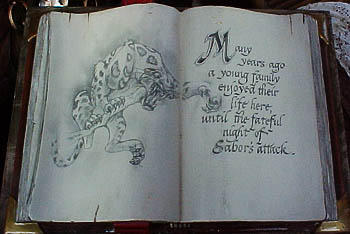 Many
years ago
a young family
enjoyed their
life here,
until the fateful
night of
Sabor's attack.